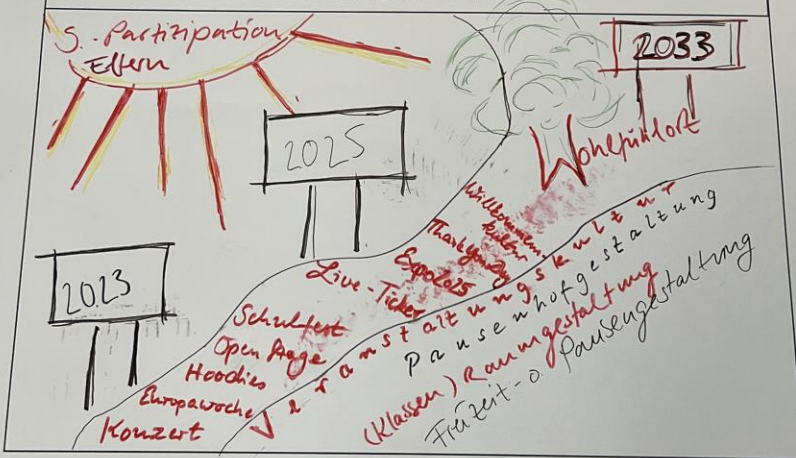 S.-Partizipation
Eltern
2033
2025
Wohlfühlort
2023
Willkommens
kultur
ThankYouDay
Expo2025
Live-Ticker
Schulfest
Open Stage
Hoodies
Europawoche
Konzert
Veranstaltungskultur
Pausenhofgestaltung
(Klassen) Raumgestaltung
Freizeit- o. Pausengestaltung